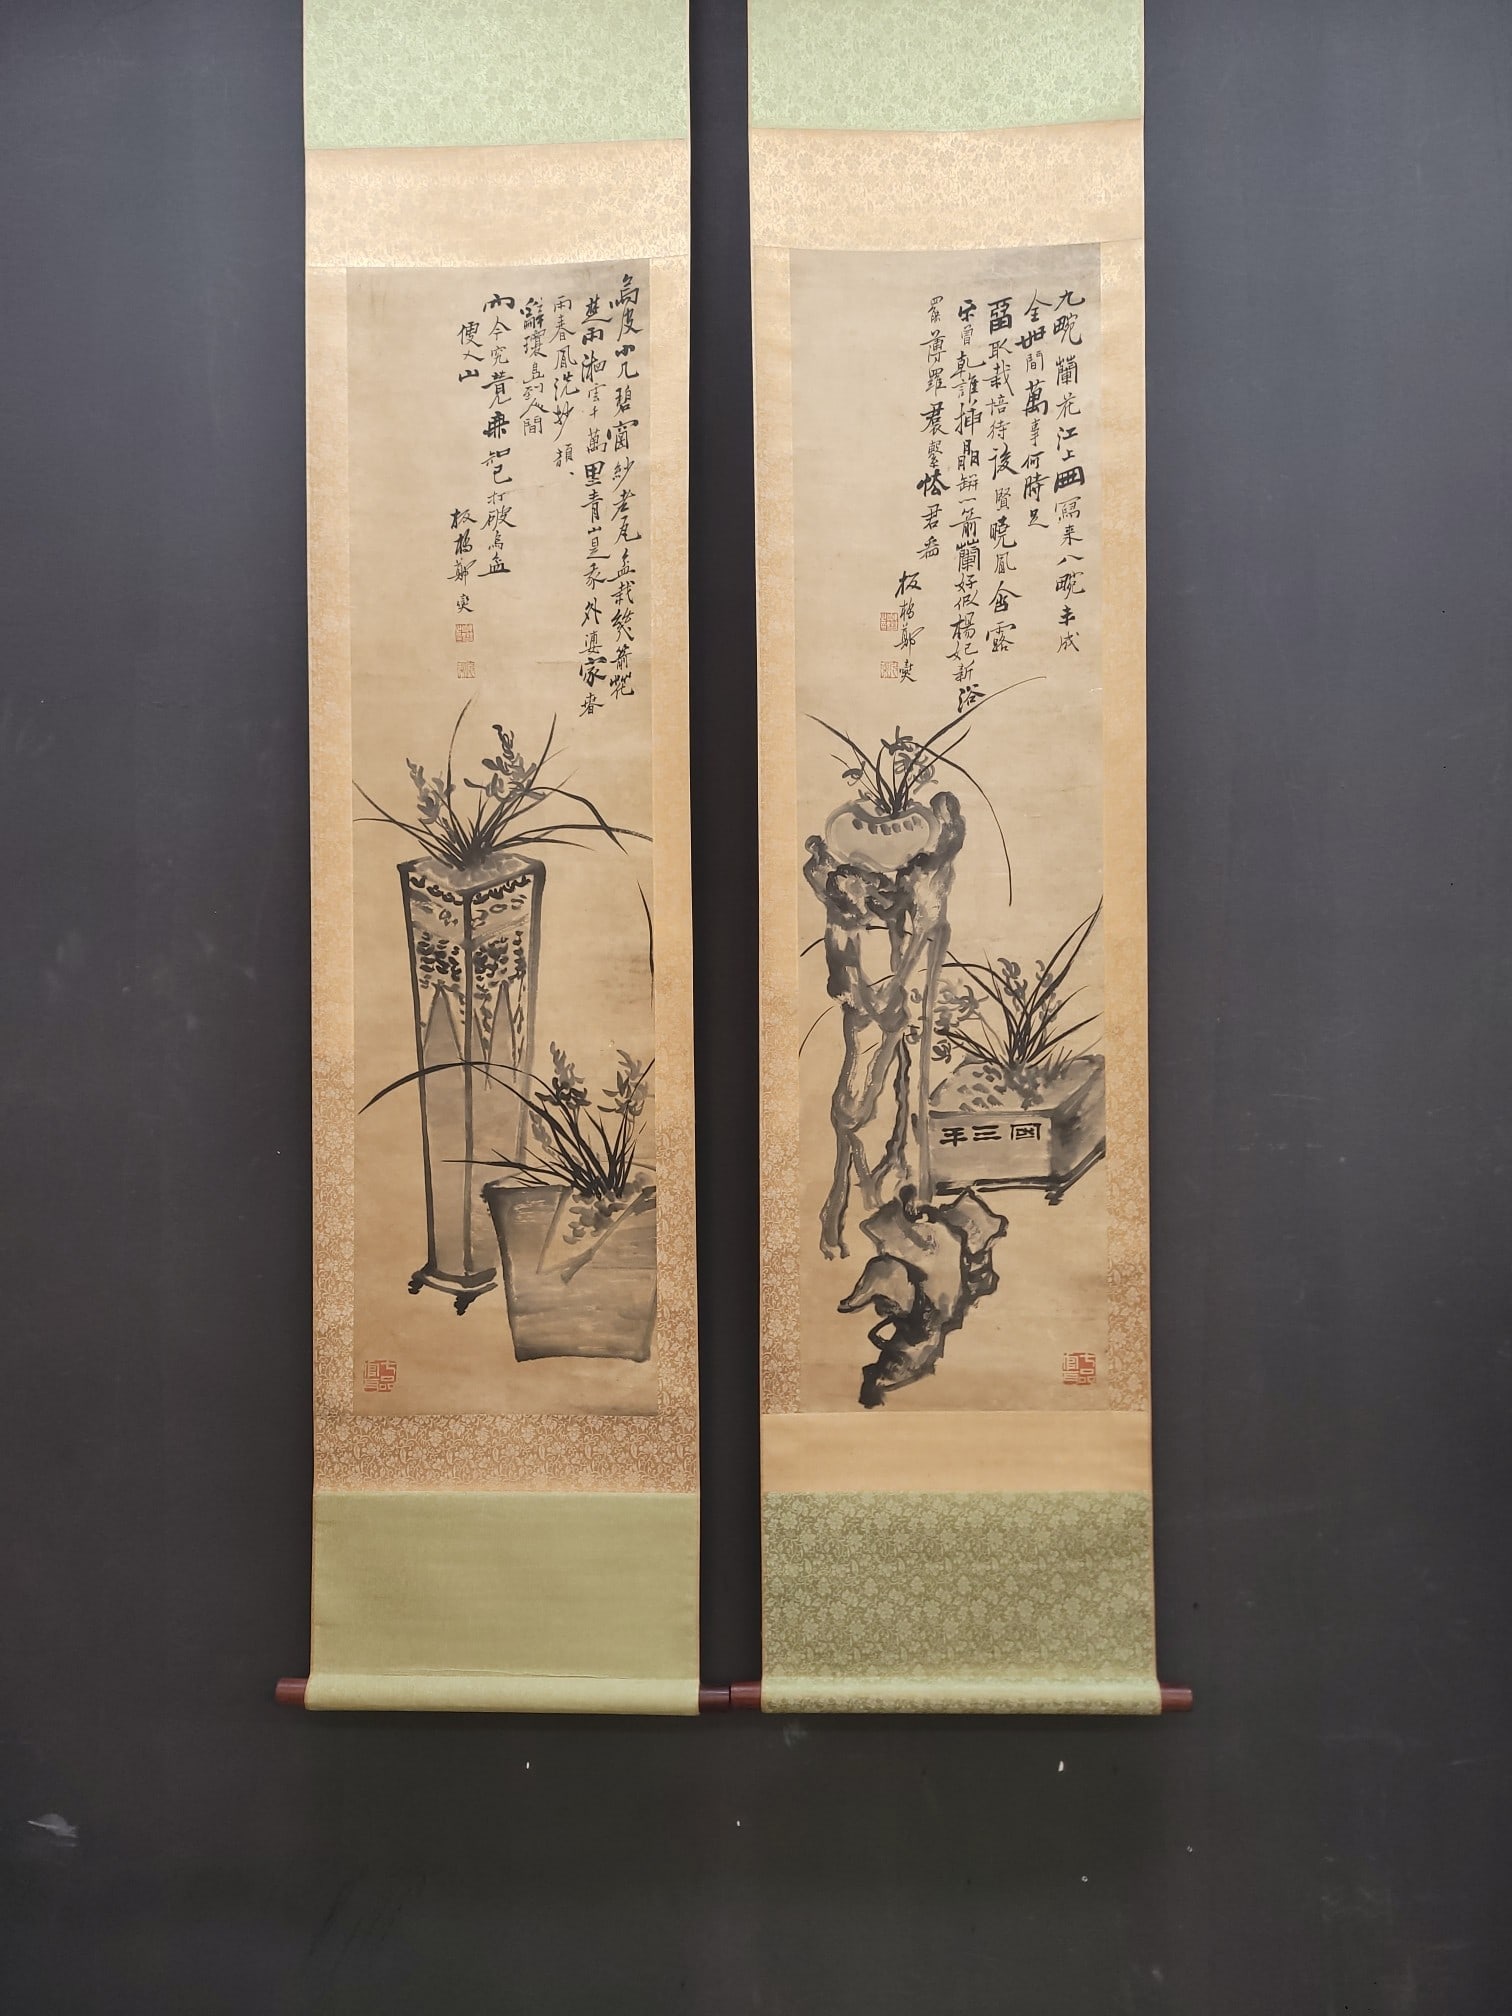 九畹蘭花江上田寫来八畹未成
全世間萬事何時足
留取栽培待後賢曉風含露
未曾乾誰插晶缾一箭蘭好似楊妃新浴
罷薄羅裳繫怯君看
板橋鄭燮
國三平
七品官耳
烏皮小几碧窗紗老瓦盆栽幾箭花
楚雨湘雲千萬里青山是我外婆家春
雨春風洗妙顔、
辭瓊島到人間
而今究竟無知己打破烏盆
便入山
板橋鄭燮
七品官耳